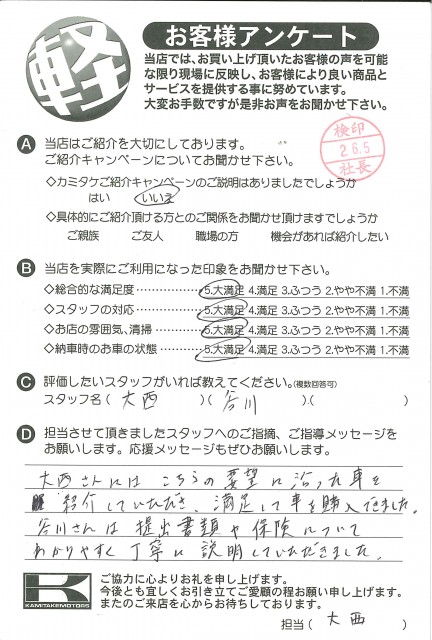 軽
お客様アンケート
当店では、お買い上げ頂いたお客様の声を可能
な限り現場に反映し、お客様により良い商品と
サービスを提供する事に努めています。
大変お手数ですが是非お声をお聞かせ下さい。
検印
26.5
社長
A 当店はご紹介を大切にしております。
ご紹介キャンペーンについてお聞かせ下さい。
◇カミタケご紹介キャンペーンのご説明はありましたでしょうか
はい いいえ
◇具体的にご紹介頂ける方とのご関係をお聞かせ頂けますでしょうか
ご親族 ご友人 職場の方 機会があれば紹介したい
B 当店を実際にご利用になった印象をお聞かせ下さい。
◇総合的な満足度 5.大満足 4.満足 3.ふつう 2.やや不満 1.不満
◇スタッフの対応 5.大満足 4.満足 3.ふつう 2.やや不満 1.不満
◇お店の雰囲気、清掃 5.大満足 4.満足 3.ふつう 2.やや不満 1.不満
◇納車時のお車の状態 5.大満足 4.満足 3.ふつう 2.やや不満 1.不満
C 評価したいスタッフがいれば教えてください。(複数回答可)
スタッフ名( 大西 )( 谷川 )( )
D 担当させて頂きましたスタッフへのご指摘、ご指導メッセージを
お願いします。応援メッセージもぜひお願いします。
大西さんには こちらの要望に沿った車を
ご紹介していただき、満足して車を購入できました。
谷川さんは提出書類や保険について
わかりやすく丁寧に説明していただきました。
K
KAMITAKEMOTORS
ご協力に心よりお礼を申し上げます。
今後とも宜しくお引き立てご愛顧の程お願い申し上げます。
またのご来店を心からお待ちしております。
担当( 大西 )